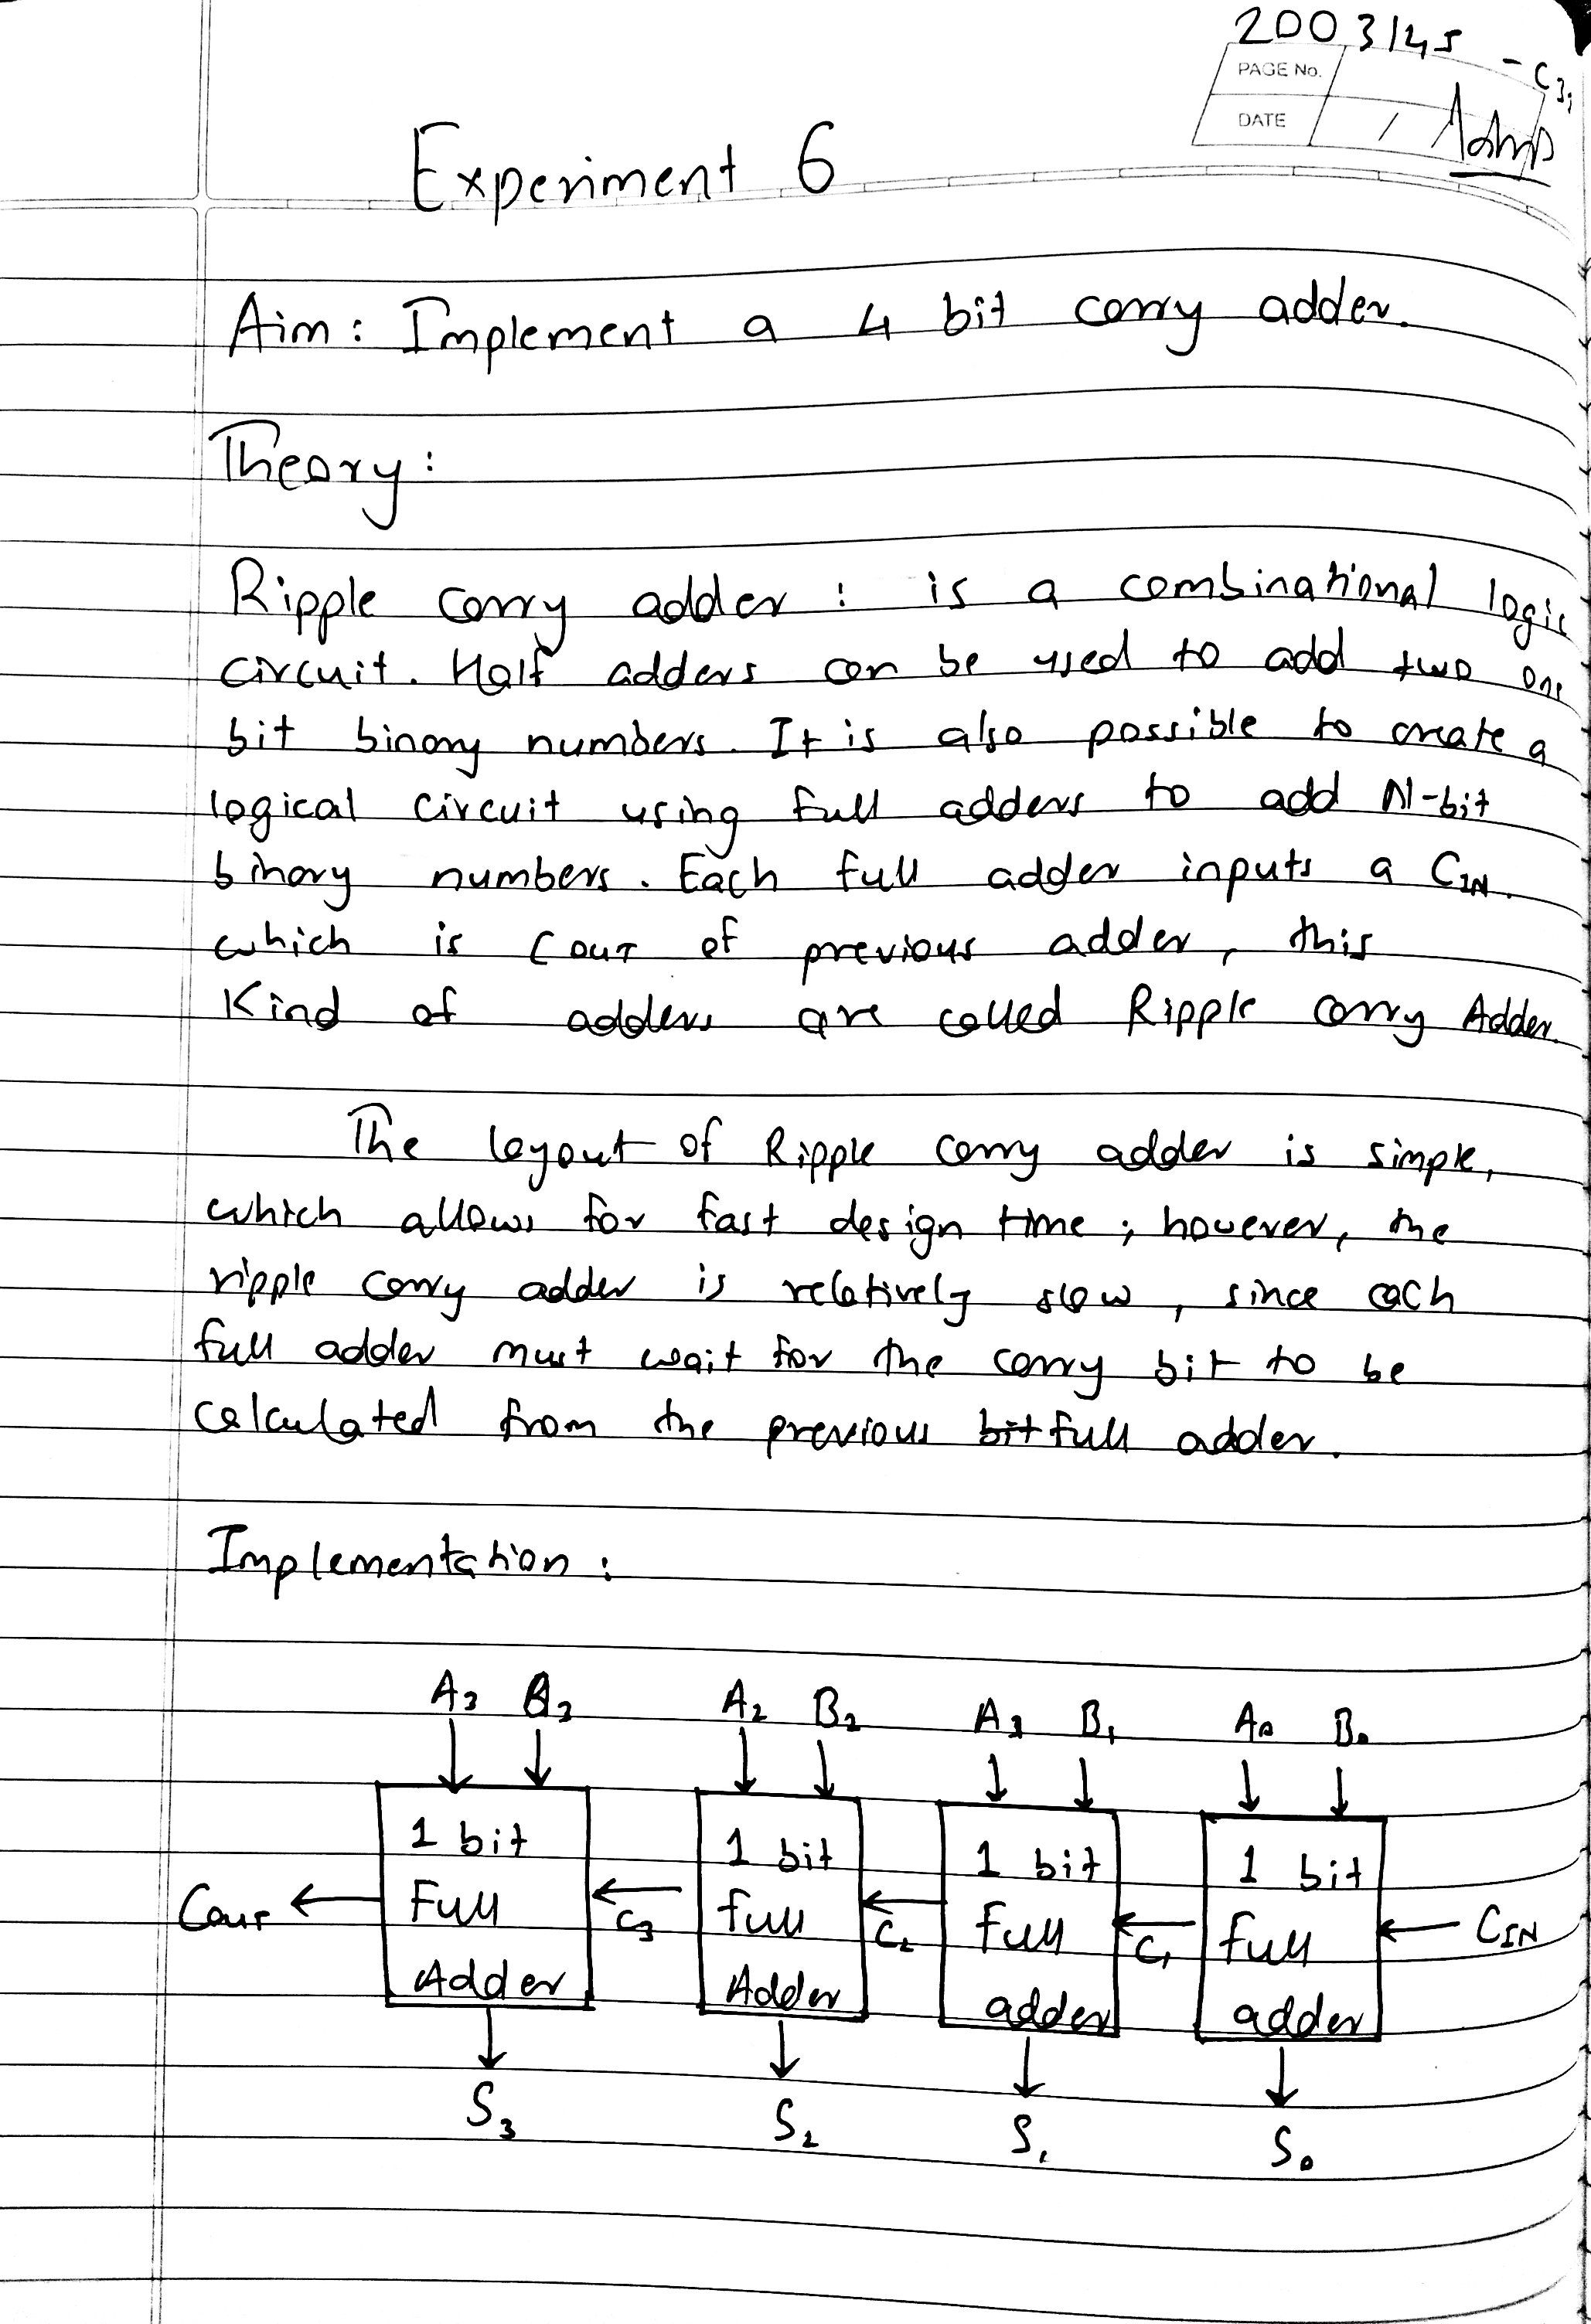 2003145 - C3,
PAGE No.
DATE /
Experiment 6
Aim: Implement a 4 bit carry adder.
Theory:
Ripple carry adder : is a combinational logic
circuit. Half adders can be used to add two one
bit binary numbers. It is also possible to create a
logical circuit using full adders to add N-bit
binary numbers. Each full adder inputs a CIN
which is COUT of previous adder, this
Kind of adders are called Ripple carry Adder.
The layout of Ripple carry adder is simple,
which allows for fast design time ; however, the
ripple carry adder is relatively slow, since each
full adder must wait for the carry bit to be
calculated from the previous bit full adder.
Implementation :
A3 B3 A2 B2 A1 B1 A0 B0
1 bit 1 bit 1 bit 1 bit
COUT Full C3 full C2 full C1 full CIN
Adder Adder adder adder
S3 S2 S1 S0